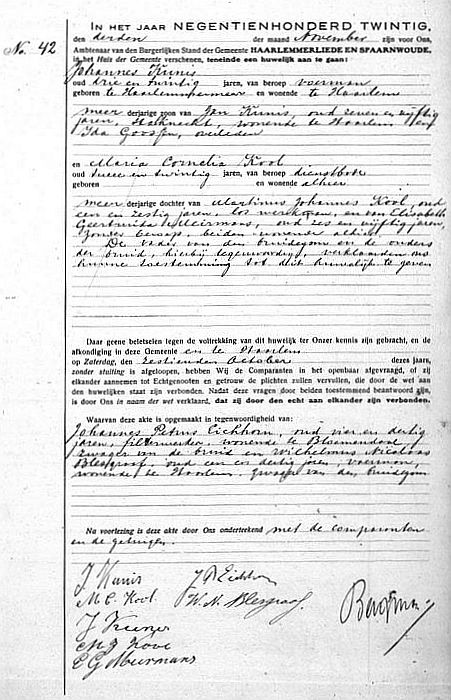 No. 42
IN HET JAAR NEGENTIENHONDERD TWINTIG,
den derden der maand November zijn voor Ons,
Ambtenaar van den Burgerlijken Stand der Gemeente HAARLEMMERLIEDE EN SPAARNWOUDE,
in het Huis der Gemeente verschenen, teneinde een huwelijk aan te gaan:
Johannes Kunis
oud drie en twintig jaren, van beroep voerman
geboren te Haarlemmermeer en wonende te Haarlem
meerderjarige zoon van Jan Kunis, oud zeven en vijftig
jaren, stalknecht, wonende te Haarlem en
Ida Goossen, overleden
en Maria Cornelia Kool
oud twee en twintig jaren, van beroep dienstbode
geboren en wonende alhier
meerderjarige dochter van Martinus Johannes Kool, oud
een en zestig jaren, los werkman, en van Elisabeth
Geertruida Meurmans, oud zes en vijftig jaren,
zonder beroep, beiden wonende alhier
De vader van den bruidegom en de ouders
der bruid, hierbij tegenwoordig, verklaarden ons
hunne toestemming tot dit huwelijk te geven
Daar geene beletselen tegen de voltrekking van dit huwelijk ter Onzer kennis zijn gebracht, en de
afkondiging in deze Gemeente en te Haarlem
op Zaterdag, den zestienden October dezes jaars,
zonder stuiting is afgeloopen, hebben Wij de Comparanten in het openbaar afgevraagd, of zij
elkander aannemen tot Echtgenooten en getrouw de plichten zullen vervullen, die door de wet aan
den huwelijken staat zijn verbonden. Nadat deze vragen door beiden toestemmend beantwoord zijn,
is door Ons in naam der wet verklaard, dat zij door den echt aan elkander zijn verbonden.
Waarvan deze akte is opgemaakt in tegenwoordigheid van:
Johannes Petrus Eichhorn, oud vier en dertig
jaren, wonende te Bloemendaal
zwager van de bruid en Wilhelmus Nicolaas
Blesgraaf, oud een en dertig jaren, voerman,
wonende te Haarlem, zwager van den bruidegom
Na voorlezing is deze akte door Ons onderteekend met de comparanten
en de getuigen.
J Kunis J P Eichhorn
M. C. Kool W. N. Blesgraaf.
J Kunis
M J Kool
E G Meurmans